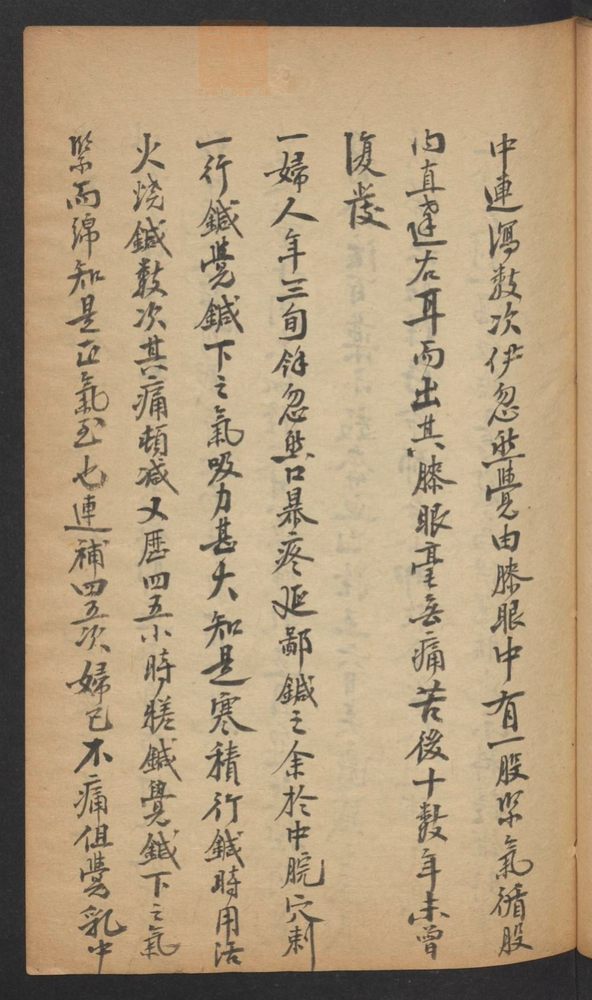 中連瀉數次伊忽然覺由膝眼中有一股緊氣循股
內直達右耳而出其膝眼毫無痛苦後十數年未曾
復發
一婦人年三旬餘忽然口暴疼延鄙鍼之余於中脘穴刺
一行鍼覺鍼下之氣吸力甚大知是寒積行鍼時用活
火燒鍼數次其痛頓減又歷四五小時搓鍼覺鍼下之氣
緊而綿知是正氣至也連補四五次婦已不痛但覺乳中